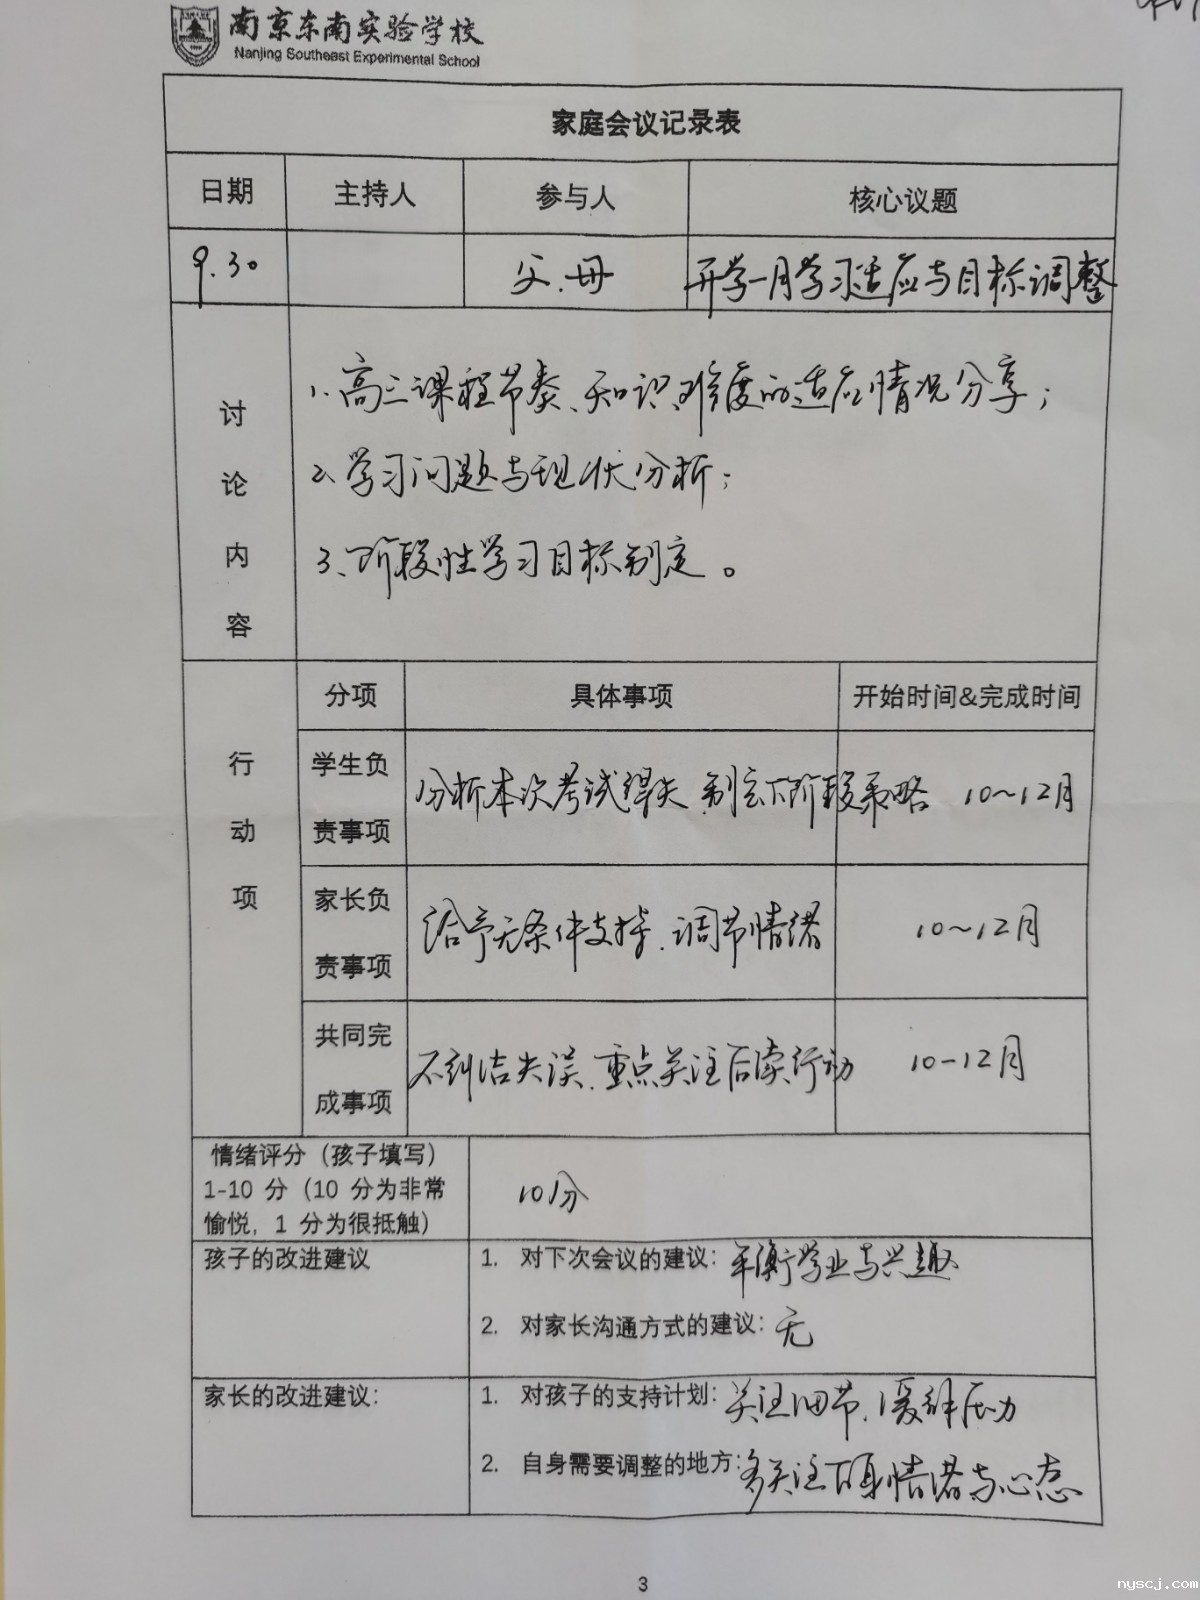 南京东南实验学校
Nanjing Southeast Experimental School
家庭会议记录表
日期 主持人 参与人 核心议题
9.30 父、母 开学一月学习适应与目标调整
讨论内容
1、高三课程节奏、知识难度的适应情况分享；
2、学习问题与现状分析；
3、阶段性学习目标制定。
行动项
分项 具体事项 开始时间&完成时间
学生负责事项 分析本次考试得失,制定下阶段策略 10~12月
家长负责事项 给予无条件支持、调节情绪 10~12月
共同完成事项 不纠结失误、重点关注后续行动 10-12月
情绪评分（孩子填写）
1-10 分（10 分为非常
愉悦，1 分为很抵触）
10分
孩子的改进建议
1. 对下次会议的建议：平衡学业与兴趣
2. 对家长沟通方式的建议：无
家长的改进建议：
1. 对孩子的支持计划：关注细节、缓解压力
2. 自身需要调整的地方：多关注自身情绪与心态
3
nyscj.com